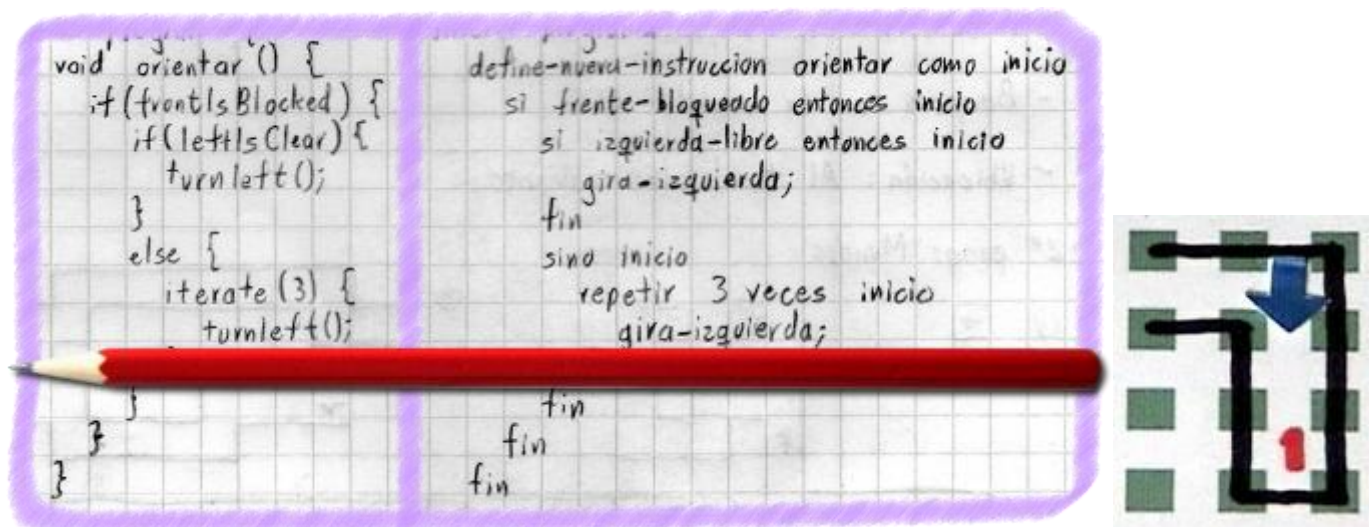 void orientar () {
if (frontIsBlocked) {
if (leftIsClear) {
turnleft();
}
else {
iterate (3) {
turnleft();
}
}
}
define-nueva-instruccion orientar como inicio
si frente-bloqueado entonces inicio
si izquierda-libre entonces inicio
gira-izquierda;
fin
sino inicio
repetir 3 veces inicio
gira-izquierda;
fin
fin
fin
1